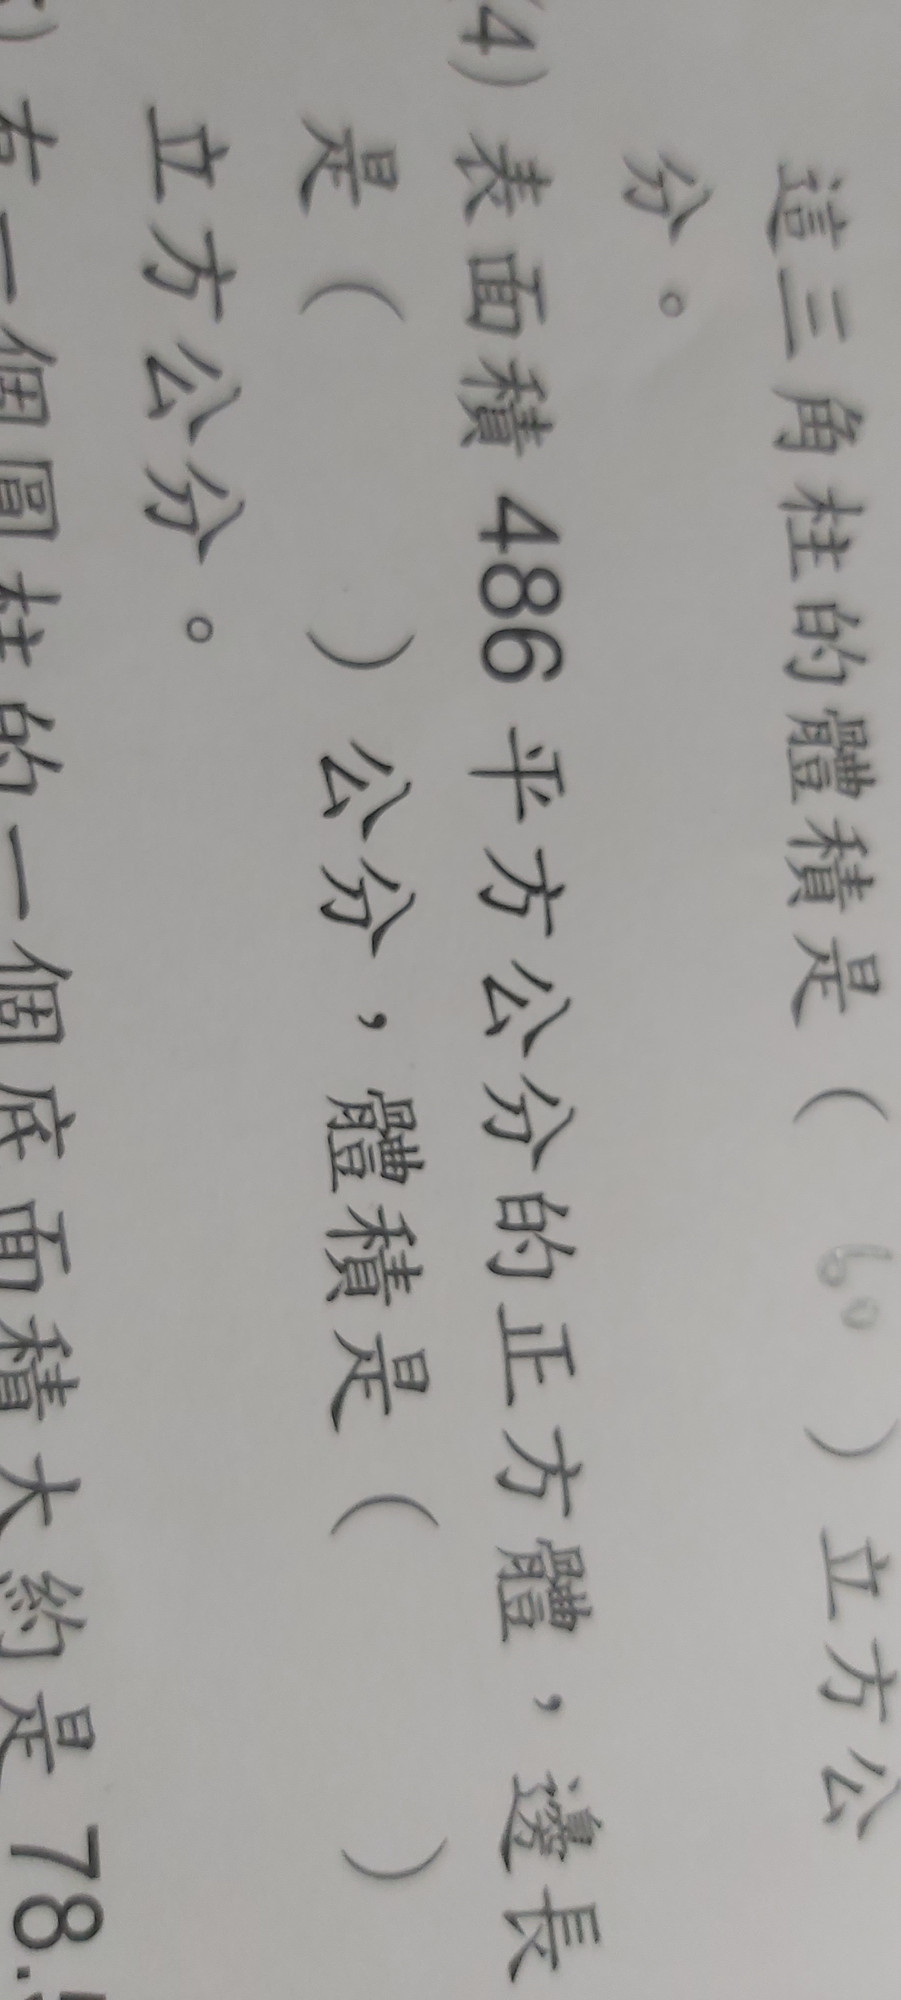 這三角柱的體積是( 60 )立方公
分。
(4) 表面積 486 平方公分的正方體，邊長
是(　　)公分，體積是(　　)
立方公分。
有一個圓柱的一個底面積大約是 78.5